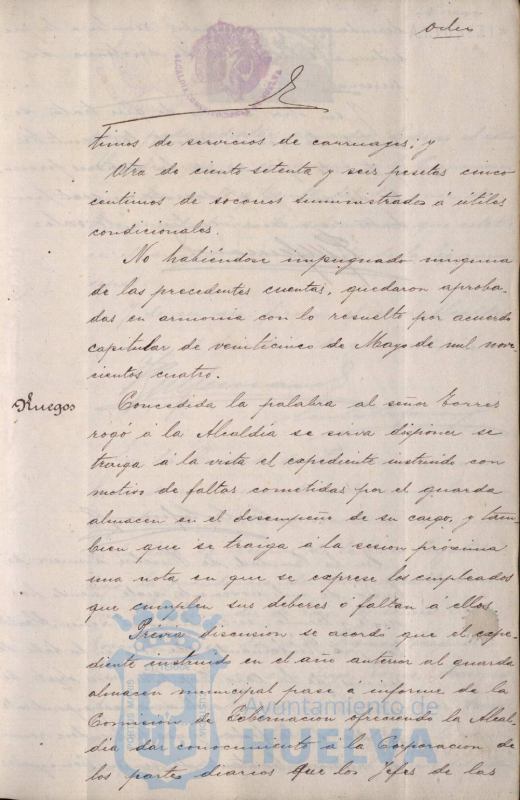 ocho
timos de servicios de carruages; y
Otra de ciento setenta y seis pesetas cinco
centimos de socorros suministrados á útiles
condicionales.
No habiéndose impugnado ninguna
de las precedentes cuentas, quedaron aproba-
das en armonia con lo resuelto por acuerdo
capitular de veinticinco de Mayo de mil nove-
cientos cuatro.
Ruegos
Concedida la palabra al señor Torres
rogó á la Alcaldía se sirva disponer se
traiga á la vista el expediente instruido con
motivo de faltas cometidas por el guarda
almacen en el desempeño de su cargo, y tam
bien que se traiga á la sesion próxima
una nota en que se exprese los empleados
que cumplen sus deberes ó faltan á ellos
Prévia discusion se acordó que el expe-
diente instruido en el año anterior al guarda
almacen municipal pase á informe de la
Comision de Gobernacion ofreciendo la Alcal-
dia dar conocimiento á la Corporacion de
los partes diarios que los Jefes de las
Ayuntamiento de
HUELVA